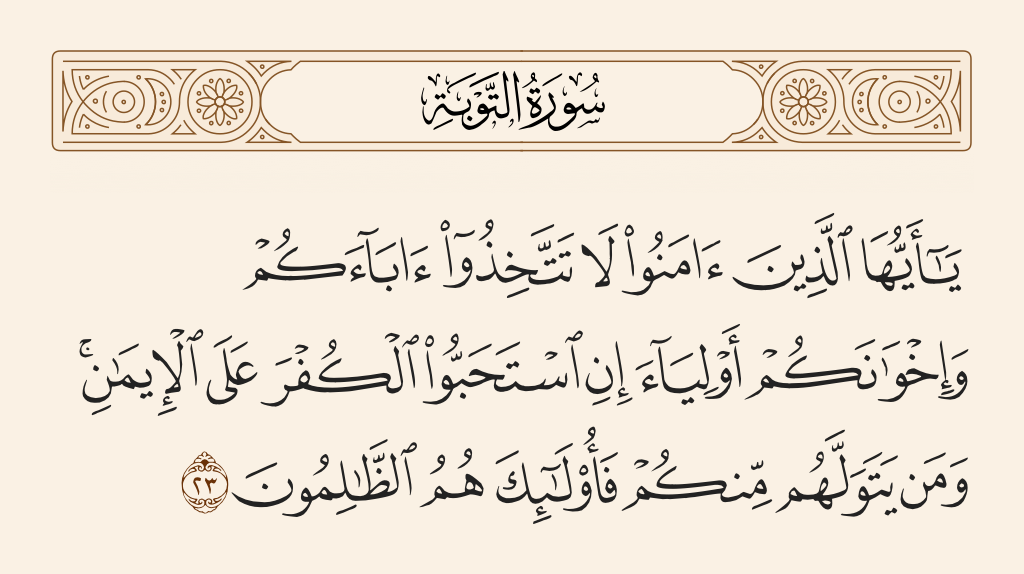 سُورَةُ التَّوْبَةِ
يَـٰٓأَيُّهَا ٱلَّذِينَ ءَامَنُوا۟ لَا تَتَّخِذُوٓا۟ ءَابَآءَكُمْ
وَإِخْوَٰنَكُمْ أَوْلِيَآءَ إِنِ ٱسْتَحَبُّوا۟ ٱلْكُفْرَ عَلَى ٱلْإِيمَـٰنِ ۚ
وَمَن يَتَوَلَّهُم مِّنكُمْ فَأُو۟لَـٰٓئِكَ هُمُ ٱلظَّـٰلِمُونَ ٢٣